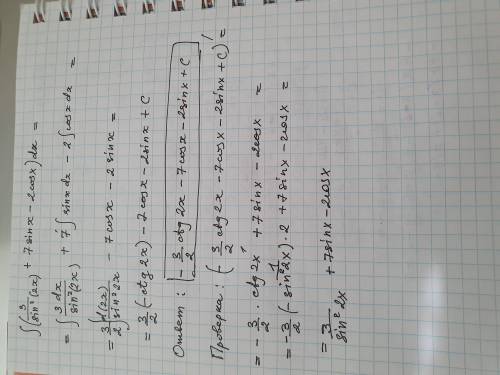 ∫(3/sin²(2x) + 7sinx - 2cosx)dx =
= ∫3dx/sin²(2x) + 7∫sinxdx - 2∫cosxdx =
= 3/2 ∫d(2x)/sin²2x - 7cosx - 2sinx =
= 3/2(-ctg2x) - 7cosx - 2sinx + C
Ответ: (-3/2 ctg2x - 7cosx - 2sinx + C
Проверка: (-3/2 ctg2x - 7cosx - 2sinx + C)' =
= -3/2 · ctg2x' + 7sinx - 2cosx =
= -3/2(-1/sin²2x) · 2 + 7sinx - 2cosx =
= 3/sin²2x + 7sinx - 2cosx